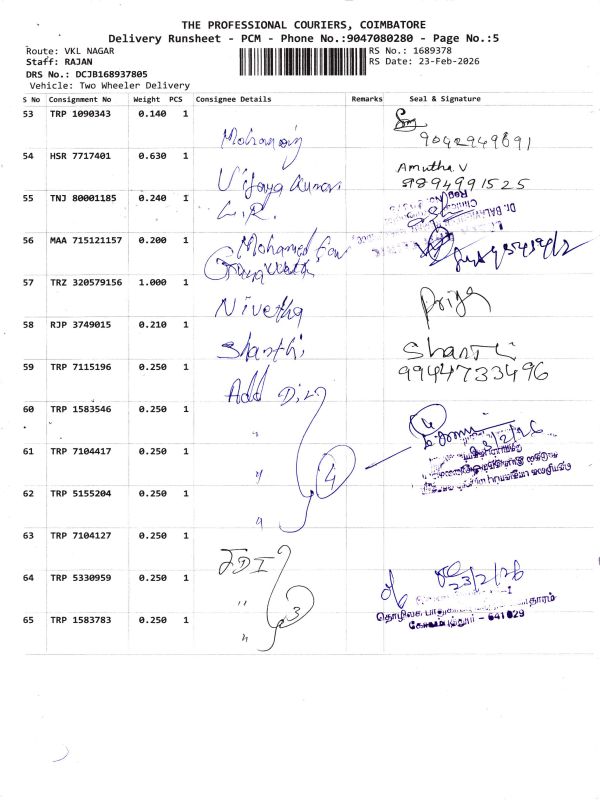 THE PROFESSIONAL COURIERS, COIMBATORE
Delivery Runsheet - PCM - Phone No.:9047080280 - Page No.:5
Route: VKL NAGAR
Staff: RAJAN
DRS No.: DCJB168937805
Vehicle: Two Wheeler Delivery
RS No.: 1689378
RS Date: 23-Feb-2026
S No Consignment No Weight PCS Consignee Details Remarks Seal & Signature
53 TRP 1090343 0.140 1
9042949891
54 HSR 7717401 0.630 1 Vijaya Kumari Amutha V
9894991525
55 TNJ 80001185 0.240 1 L.R.
56 MAA 715121157 0.200 1 Mohamed
57 TRZ 320579156 1.000 1 Nivetha Priya
58 RJP 3749015 0.210 1 Shanthi Shanthi
59 TRP 7115196 0.250 1 Add 9944733496
60 TRP 1583546 0.250 1 "
23/2/26
61 TRP 7104417 0.250 1 " 4
62 TRP 5155204 0.250 1 "
63 TRP 7104127 0.250 1
64 TRP 5330959 0.250 1 " 23/2/26
65 TRP 1583783 0.250 1 " 3
கோயமுத்தூர் - 641029